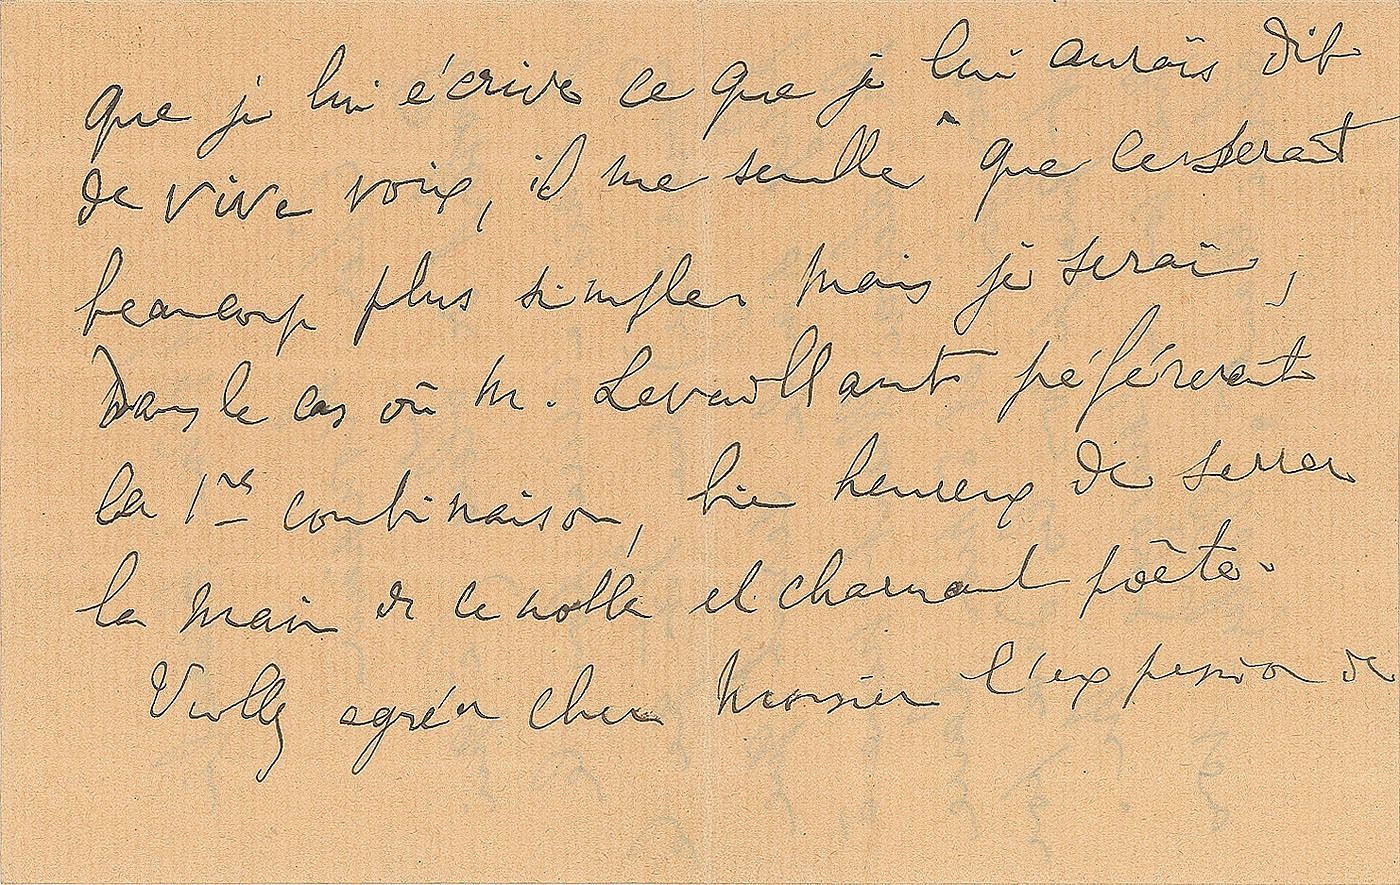 que je lui écrive ce que je lui aurais dit
de vive voix, il me semble que ce serait
beaucoup plus simple. Mais je serai,
dans le cas où M. Levaillant préférerait
la 1re combinaison, bien heureux de serrer
la main de ce noble et charmant poête.
Veuillez agréer cher Monsieur l'expression de